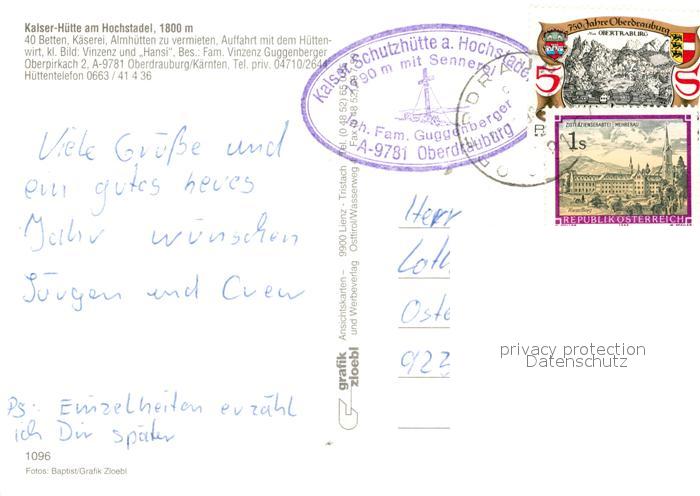 Kalser-Hütte am Hochstadel, 1800 m
40 Betten, Käserei, Almhütten zu vermieten, Auffahrt mit dem Hütten-
wirt, kl. Bild: Vinzenz und „Hansi", Bes.: Fam. Vinzenz Guggenberger
Oberpirkach 2, A-9781 Oberdrauburg/Kärnten, Tel. priv. 04710/2644
Hüttentelefon 0663 / 41 4 36
Viele Grüße und
ein gutes neues
Jahr wünschen
Jürgen und Crew
Ps: Einzelheiten erzähl
ich Dir später
1096
Fotos: Baptist/Grafik Zloebl
grafik
zloebl
Ansichtskarten –
und Werbeverlag
9900 Lienz - Tristach
Osttirol/Wasserweg
Tel. (0 48 52) 65
Fax (0 48 52)
Kalser Schutzhütte a. Hochstadel
m mit Sennerei
Fam. Guggenberger
A-9781 Oberdrauburg
750 Jahre Oberdrauburg
OBERTRABURG
5 S
ZISTERZIENSERABTEI MEHRERAU
1s
REPUBLIK ÖSTERREICH
Herr
Loth
Oste
923
privacy protection
Datenschutz